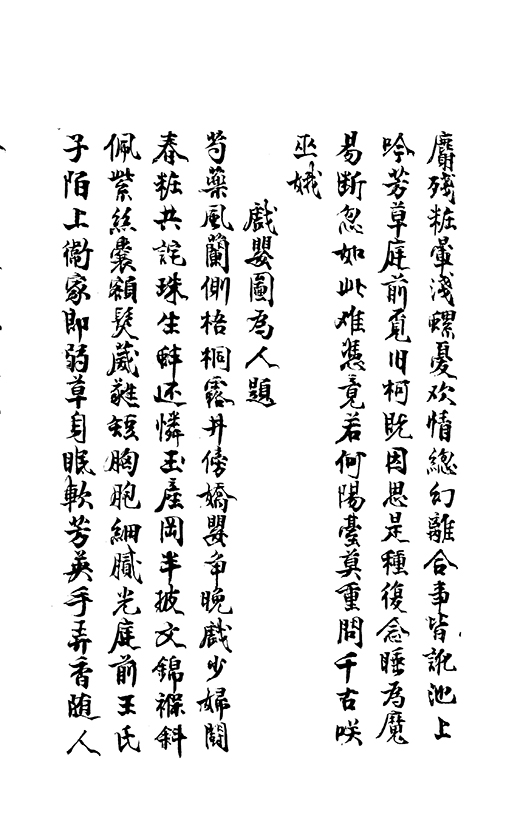 麝殘粧暈淺螺憂歡情總幻離合事皆訛池上
吟芳草庭前覓旧柯既因思是種復念睡為魔
易断忽如此难憑竟若何陽臺莫重問千古咲
巫娥
戲嬰圖為人題
芍藥風蘭側梧桐露井傍嬌嬰争晚戲少婦鬪
春粧共詫珠生蚌还憐玉產岡半披文錦褓斜
佩紫絲囊額髮葳蕤短胸胞細膩光庭前王氏
子陌上衛家郎弱草身眠軟芳英手弄香随人